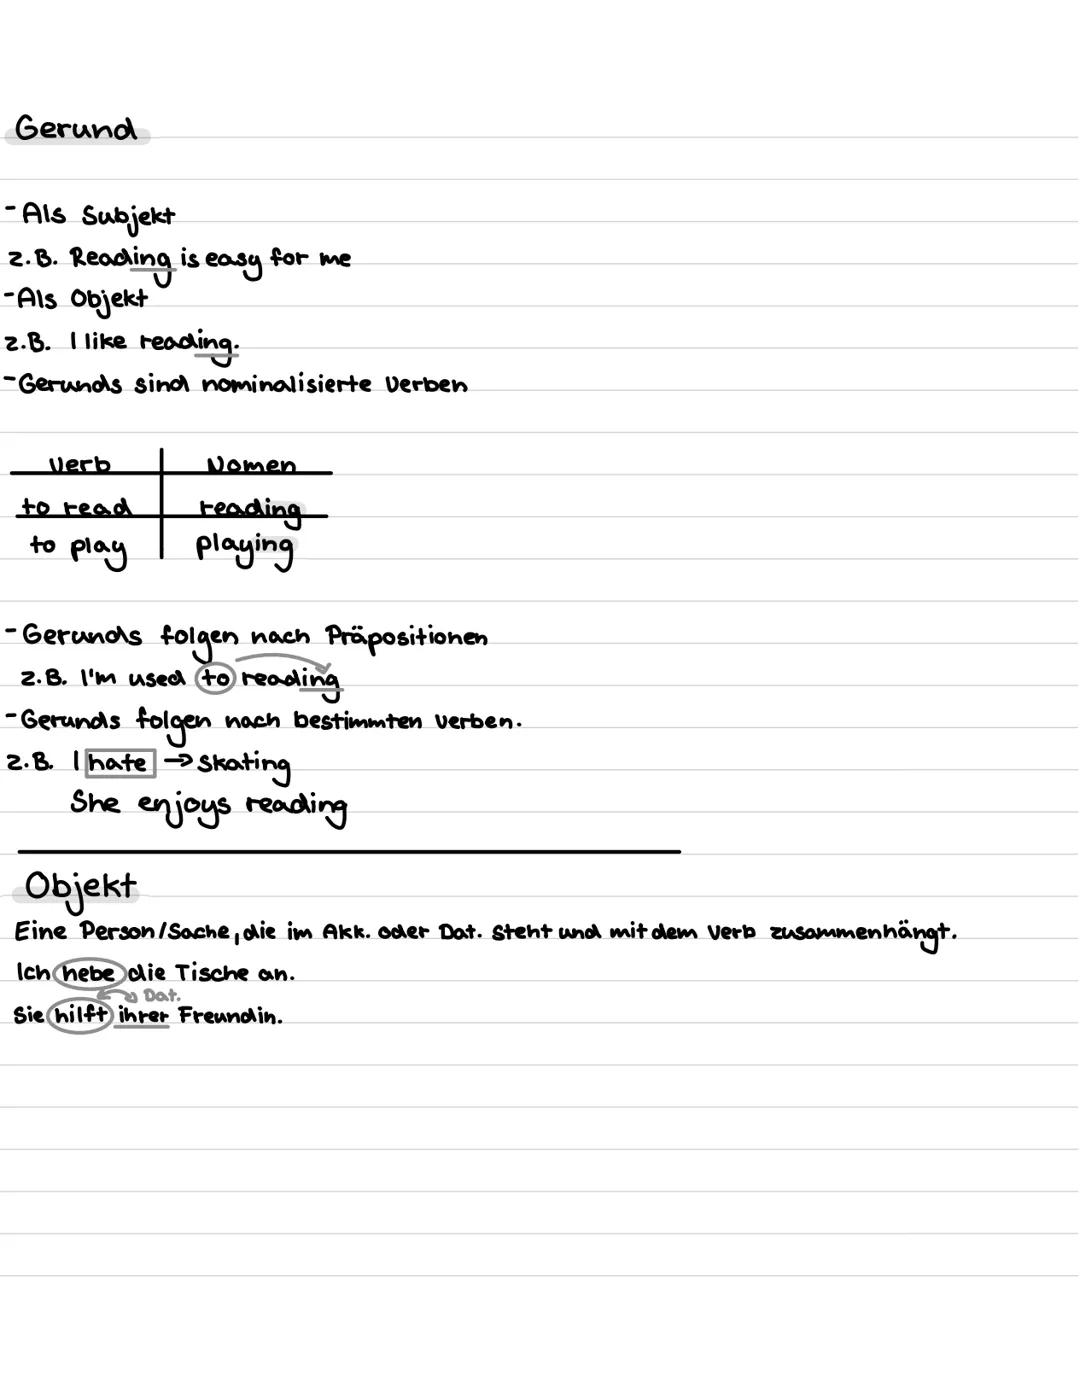 Gerund
- Als Subjekt
z.B. Reading is easy for me
- Als Objekt
z.B. I like reading.
- Gerunds sind nominalisierte Verben
Verb | Nomen
to read | reading
to play | playing
- Gerunds folgen nach Präpositionen
z.B. I'm used to reading
- Gerunds folgen nach bestimmten Verben.
z.B. I hate → skating
She enjoys reading
Objekt
Eine Person/Sache, die im Akk. oder Dat. steht und mit dem Verb zusammenhängt.
Ich hebe die Tische an.
Dat.
Sie hilft ihrer Freundin.